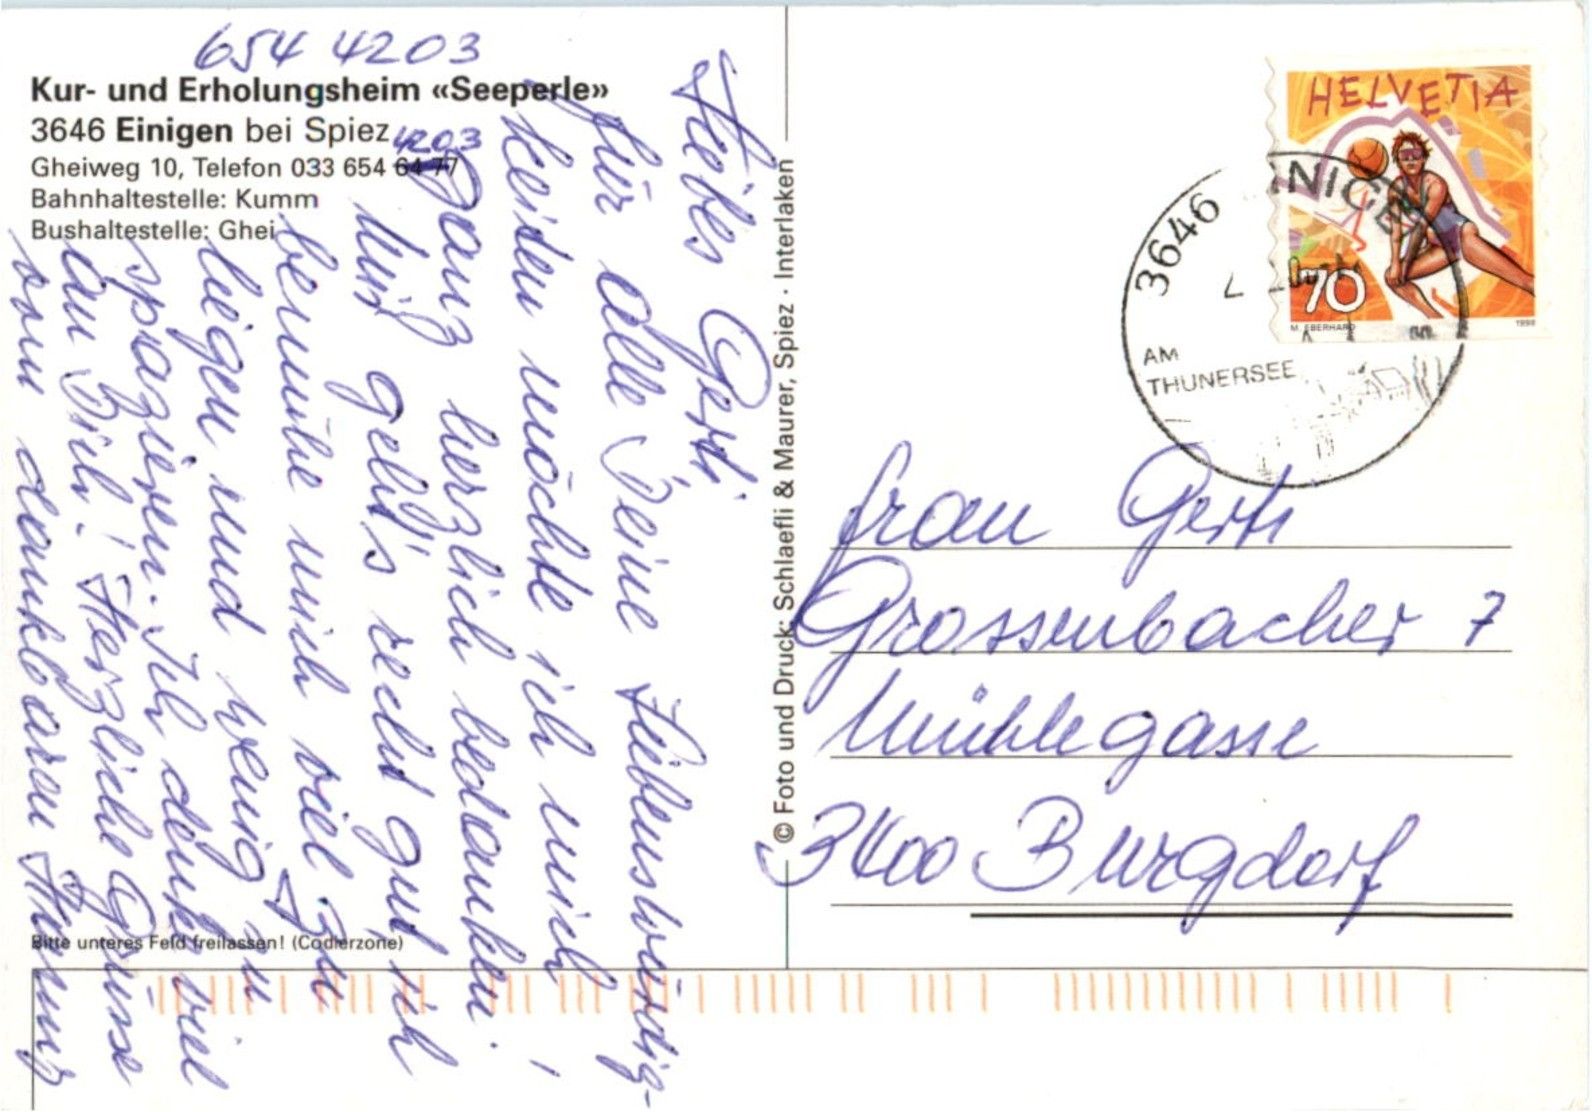 654 4203
Kur- und Erholungsheim «Seeperle»
3646 Einigen bei Spiez
4203
Gheiweg 10, Telefon 033 654 64 77
Bahnhaltestelle: Kumm
Bushaltestelle: Ghei
Liebes Gerti
für alle Deine Liebenswürdig-
keiten möchte ich mich !
ganz herzlich bedanken.
Mir geht's recht gut ich
bemühe mich viel zu
liegen und wenig zu
spazieren. Ich denke viel
an Dich! Herzliche Grüsse
vom dankbaren
Bitte unteres Feld freilassen! (Codierzone)
© Foto und Druck: Schlaefli & Maurer, Spiez · Interlaken
HELVETIA
70
M. EBERHARD
1998
3646 EINIGEN
AM
THUNERSEE
Frau Gerti
Grossenbacher 7
Mühlegasse
3400 Burgdorf